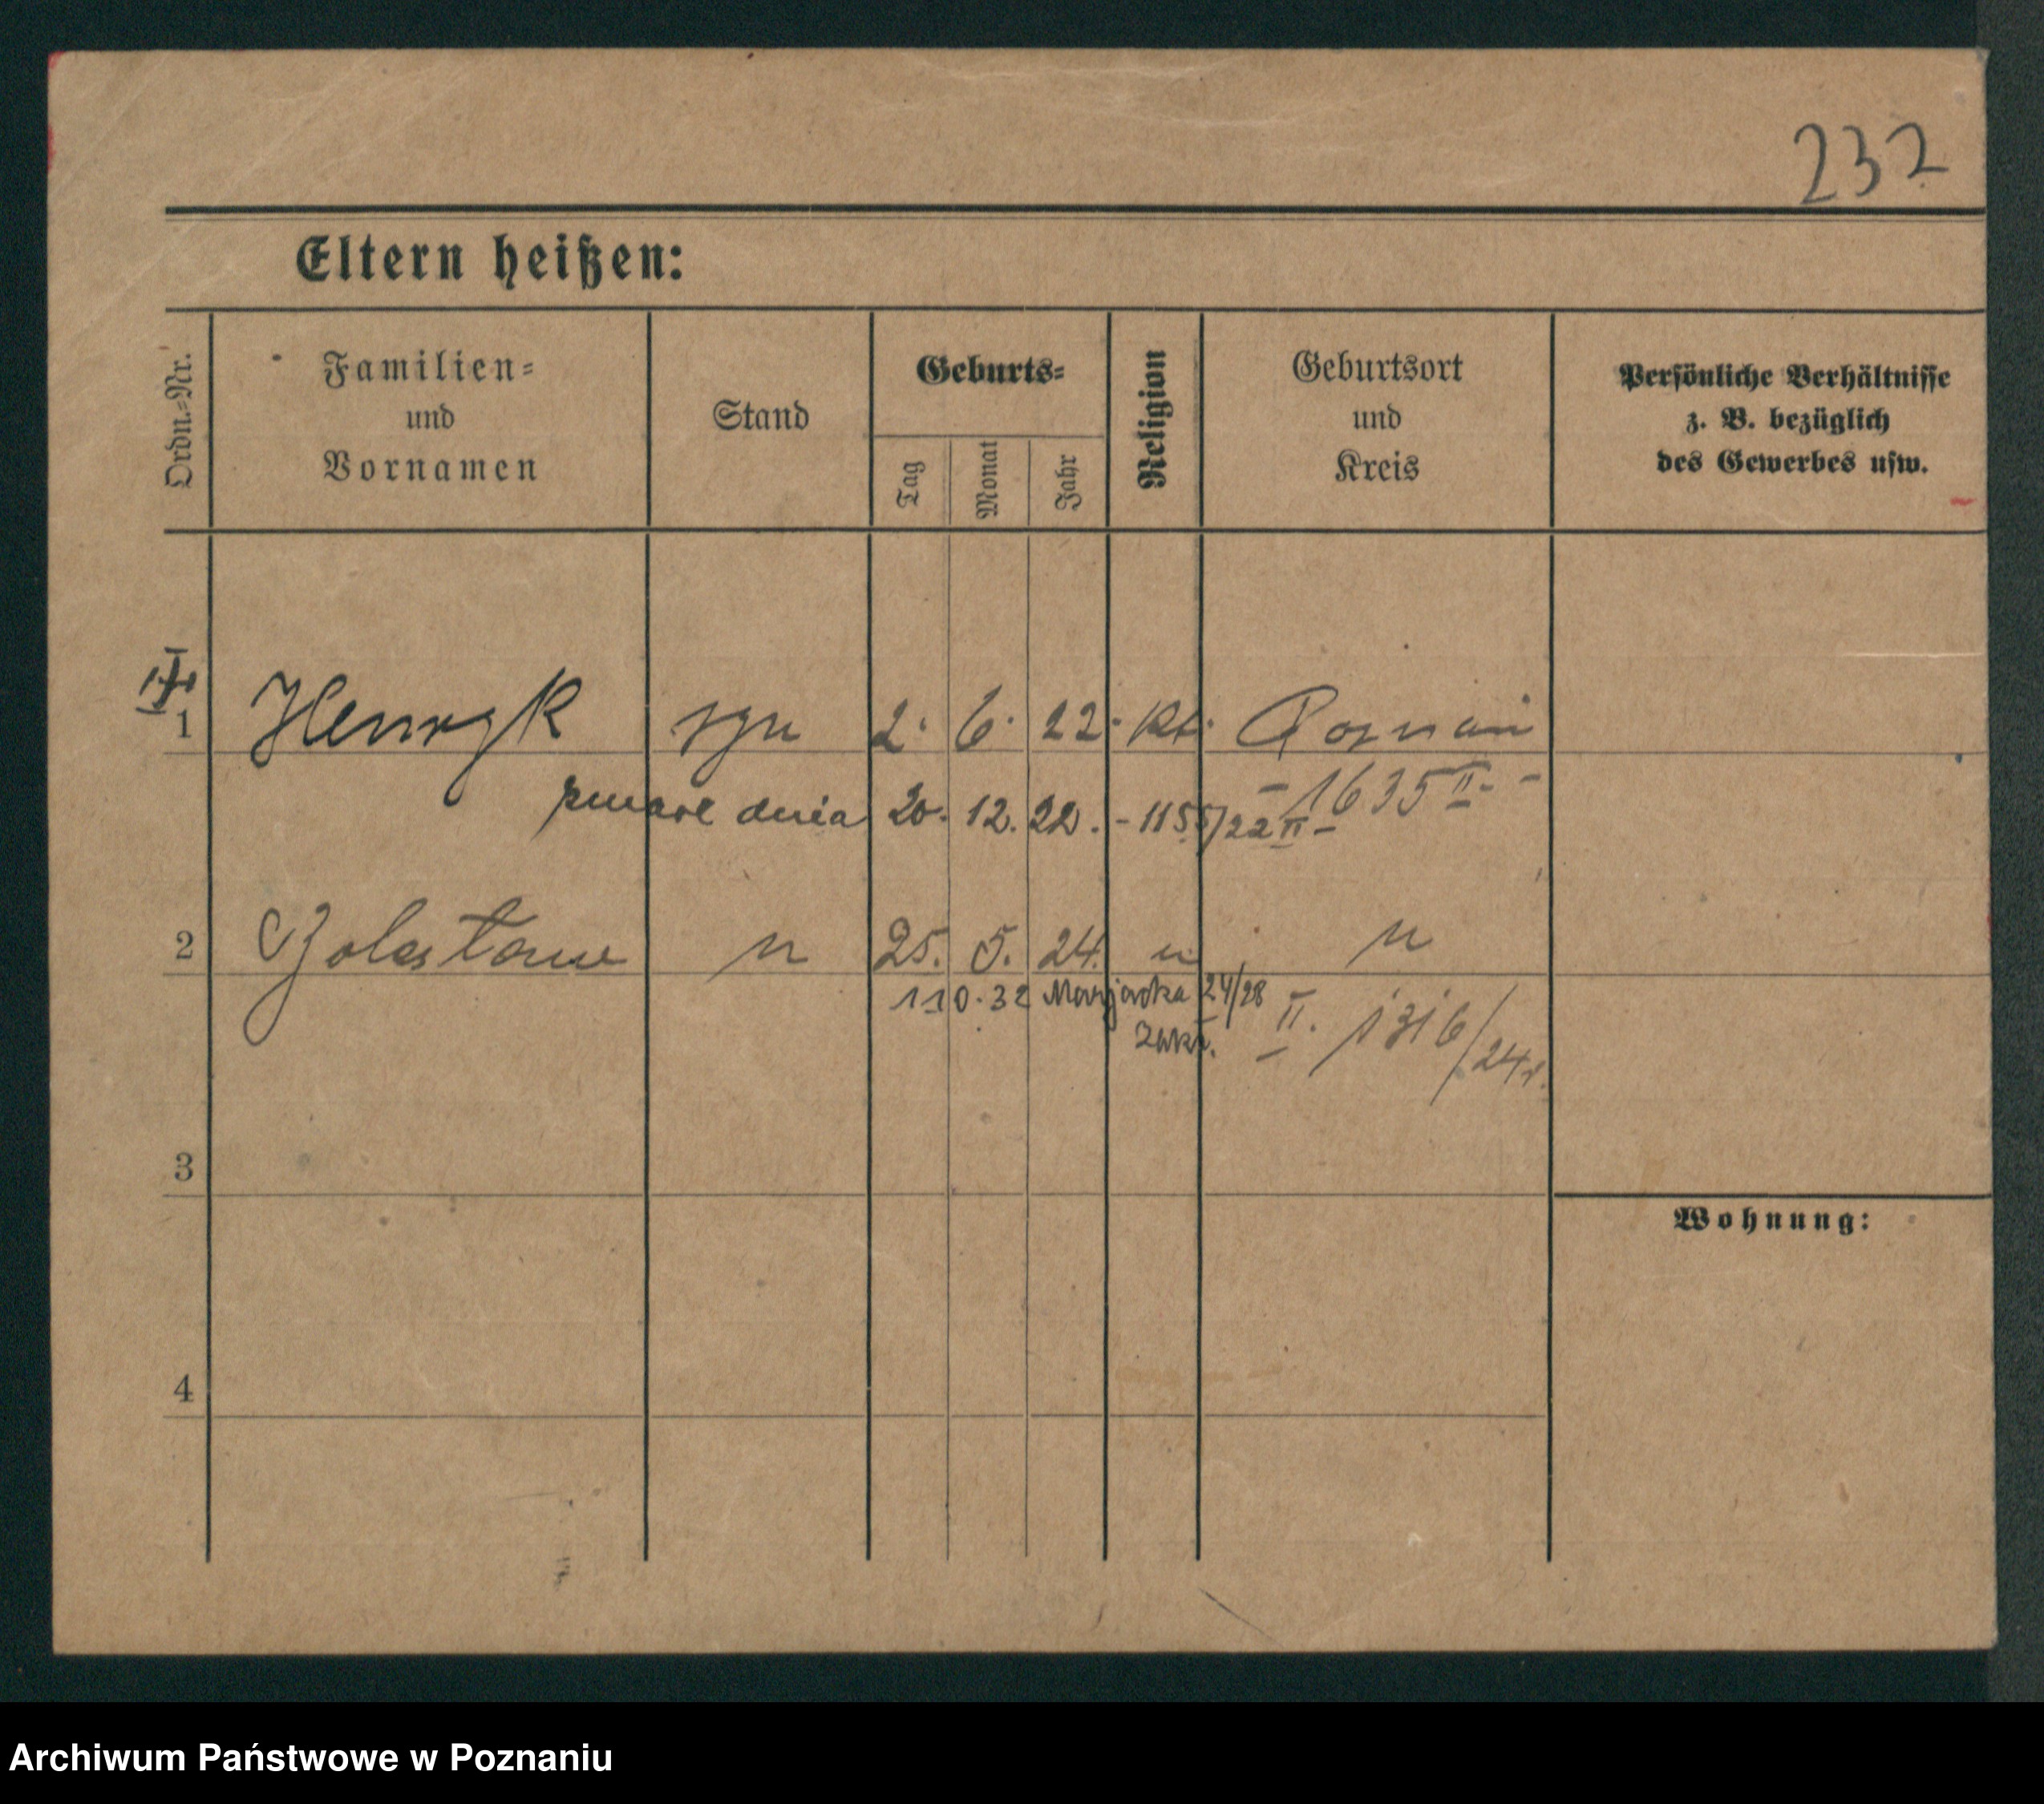 232
Eltern heißen:
Ordn.-Nr.
Familien-
und
Vornamen
Stand
Geburts-
Tag
Monat
Jahr
Religion
Geburtsort
und
Kreis
Persönliche Verhältnisse
z. B. bezüglich
des Gewerbes usw.
1 Henryk syn 2. 6. 22. kt. Poznań
- 1635 II -
zmarł dnia 20. 12. 22. - 1155/22 II -
2 Bolesław " 25. 5. 24. " "
1 10. 32 Marjacka 24/28
II. 1316/24r.
Zakł.
3
Wohnung:
4
Archiwum Państwowe w Poznaniu